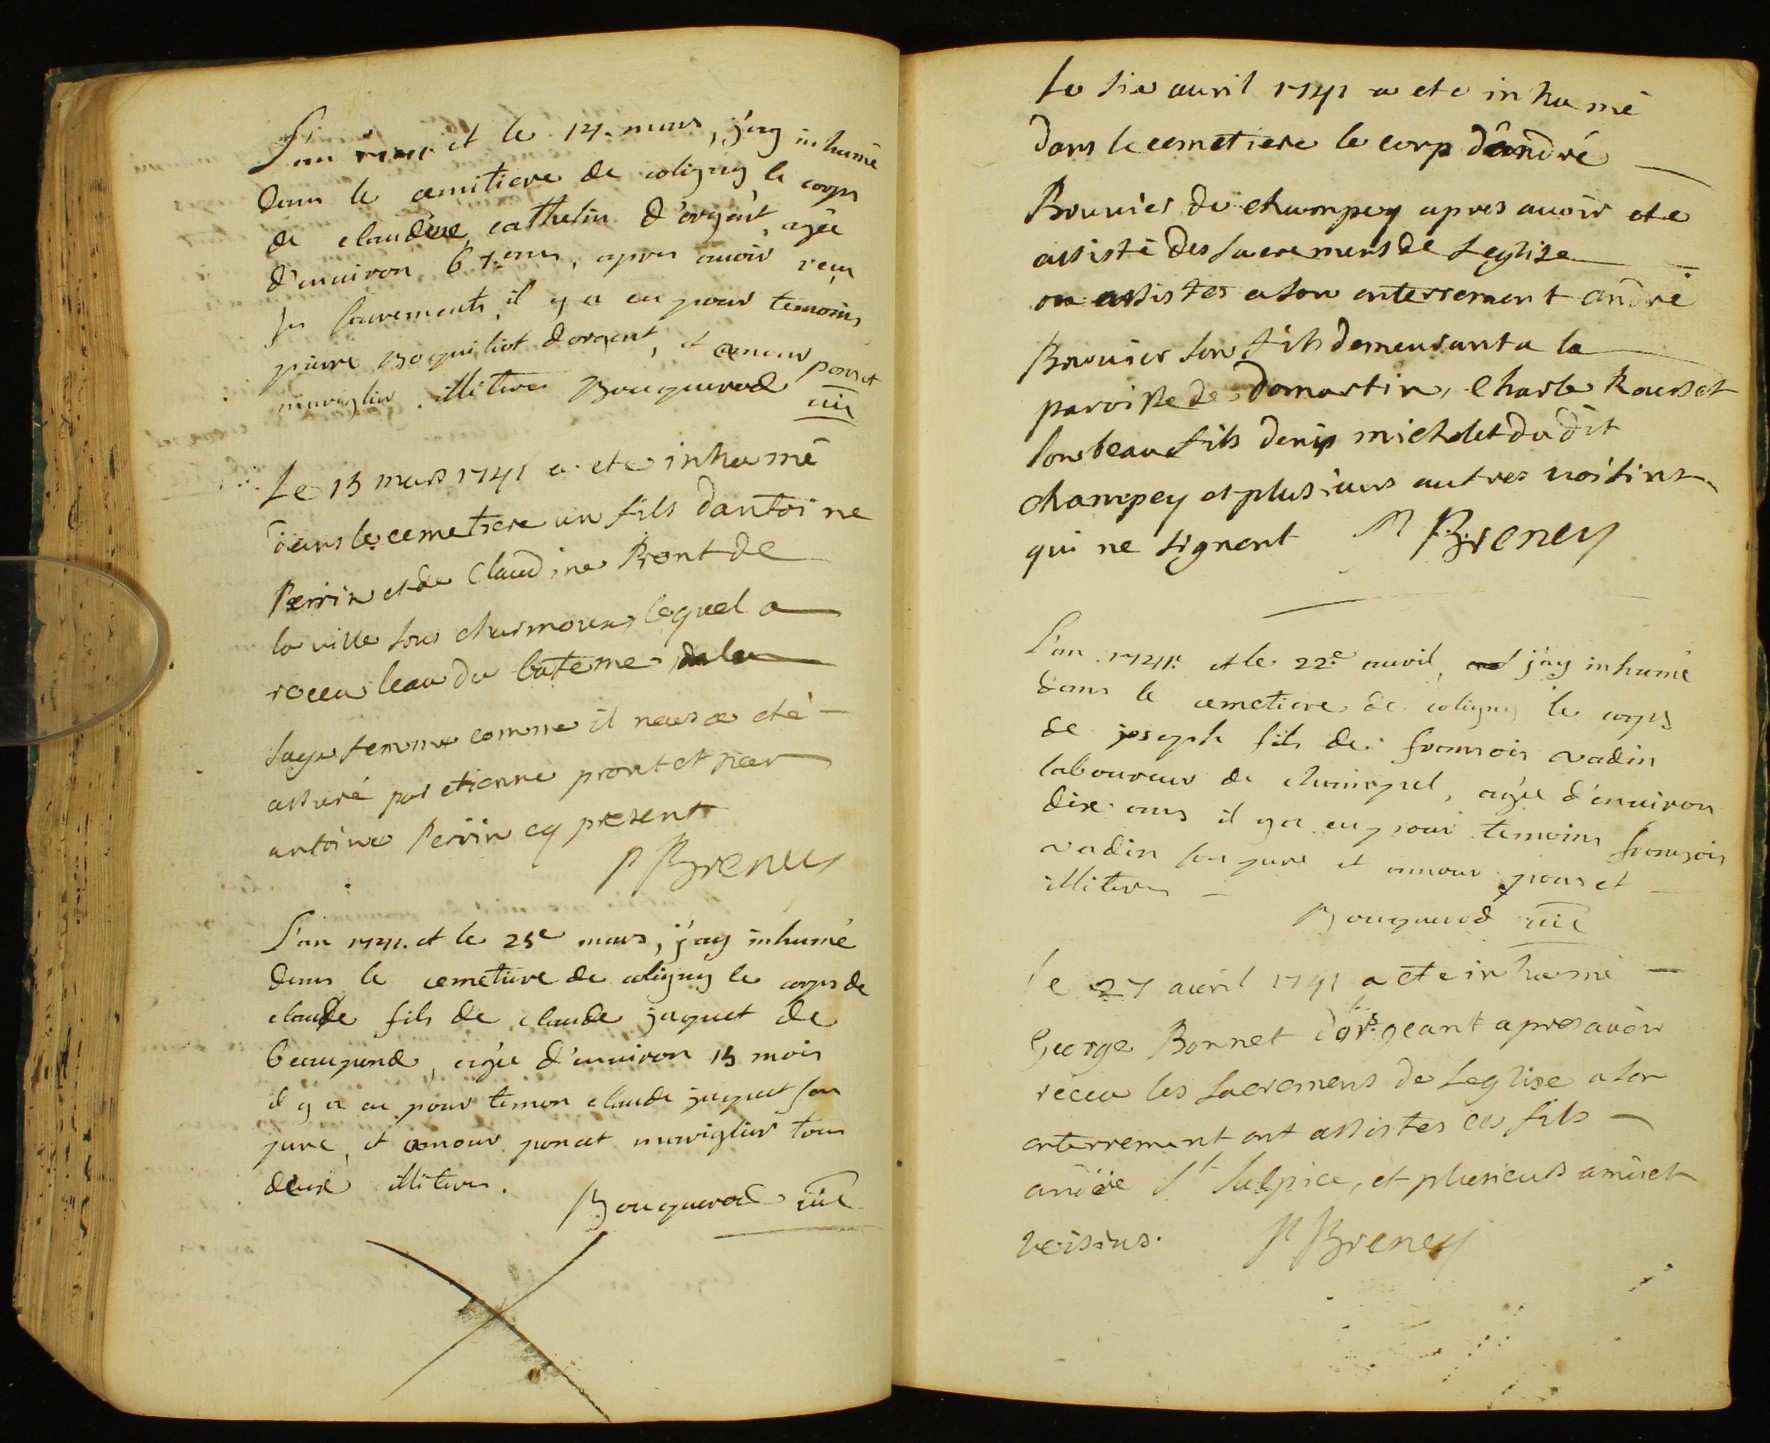 L'an 1741 et le 14. mars, j'ay inhumé
dans le cemitiere de coligny le corps
de claudine cathelin d'orgent, agée
d'enuiron 67. ans, apres auoir reçu
les sacrements, il y a eu pour temoins
pierre Boquillot d'orgent, et amour poncet
mariglier illiteres Bouquerod vic
Le 15 mars 1741 a ete inhumé
dans le cemetiere un fils dantoine
Perrin et de Claudine Pront de
la ville sous charmoux lequel a
receu leau du bateme de la
sage femme comme il nous a eté
assuré par etienne pront et par
antoine Perrin cy present
P Breney
L'an 1741. et le 25e mars, j'ay inhumé
dans le cemetiere de coligny le corps de
claude fils de claude jaquet de
beaupond, agée d'enuiron 15 mois
il y a eu pour temon claude jaquet son
pere, et amour poncet mariglier tous
deux illiteres.
Bouquerod vic
Le six auril 1741 a ete inhumé
dans le cemetiere le corp d'andré
Bruuier de champey apres auoir ete
assisté des sacremens de Leglise
on assistes a son enterrement andré
Bruuier son fils demeurant a la
paroisse de domartin, Charle Rousset
son beau fils denis michelet du dit
champey et plusieurs autres uoisins
qui ne signent P Breney
L'an 1741. et le 22e. auril, j'ay inhumé
dans le cemetiere de coligny le corps
de joseph fils de françois vadin
laboureur de champel, agée d'enuiron
dix ans il y a eu pour temoins françois
vadin son pere et amour poncet
illiteres
Bouquerod vic
le 27 auril 1741 a ete inhumé
George Bonnet d'orgeant apres auoir
receu les sacremens de Leglise a son
enterrement ont assistes ces fils
andré St Sulpice, et plusieurs amis et
voisins. P Breney